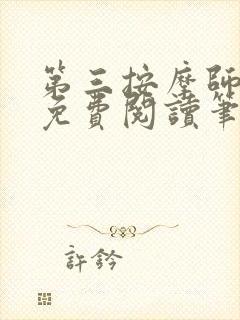 第三按摩師
免費閱讀筆
許鈐